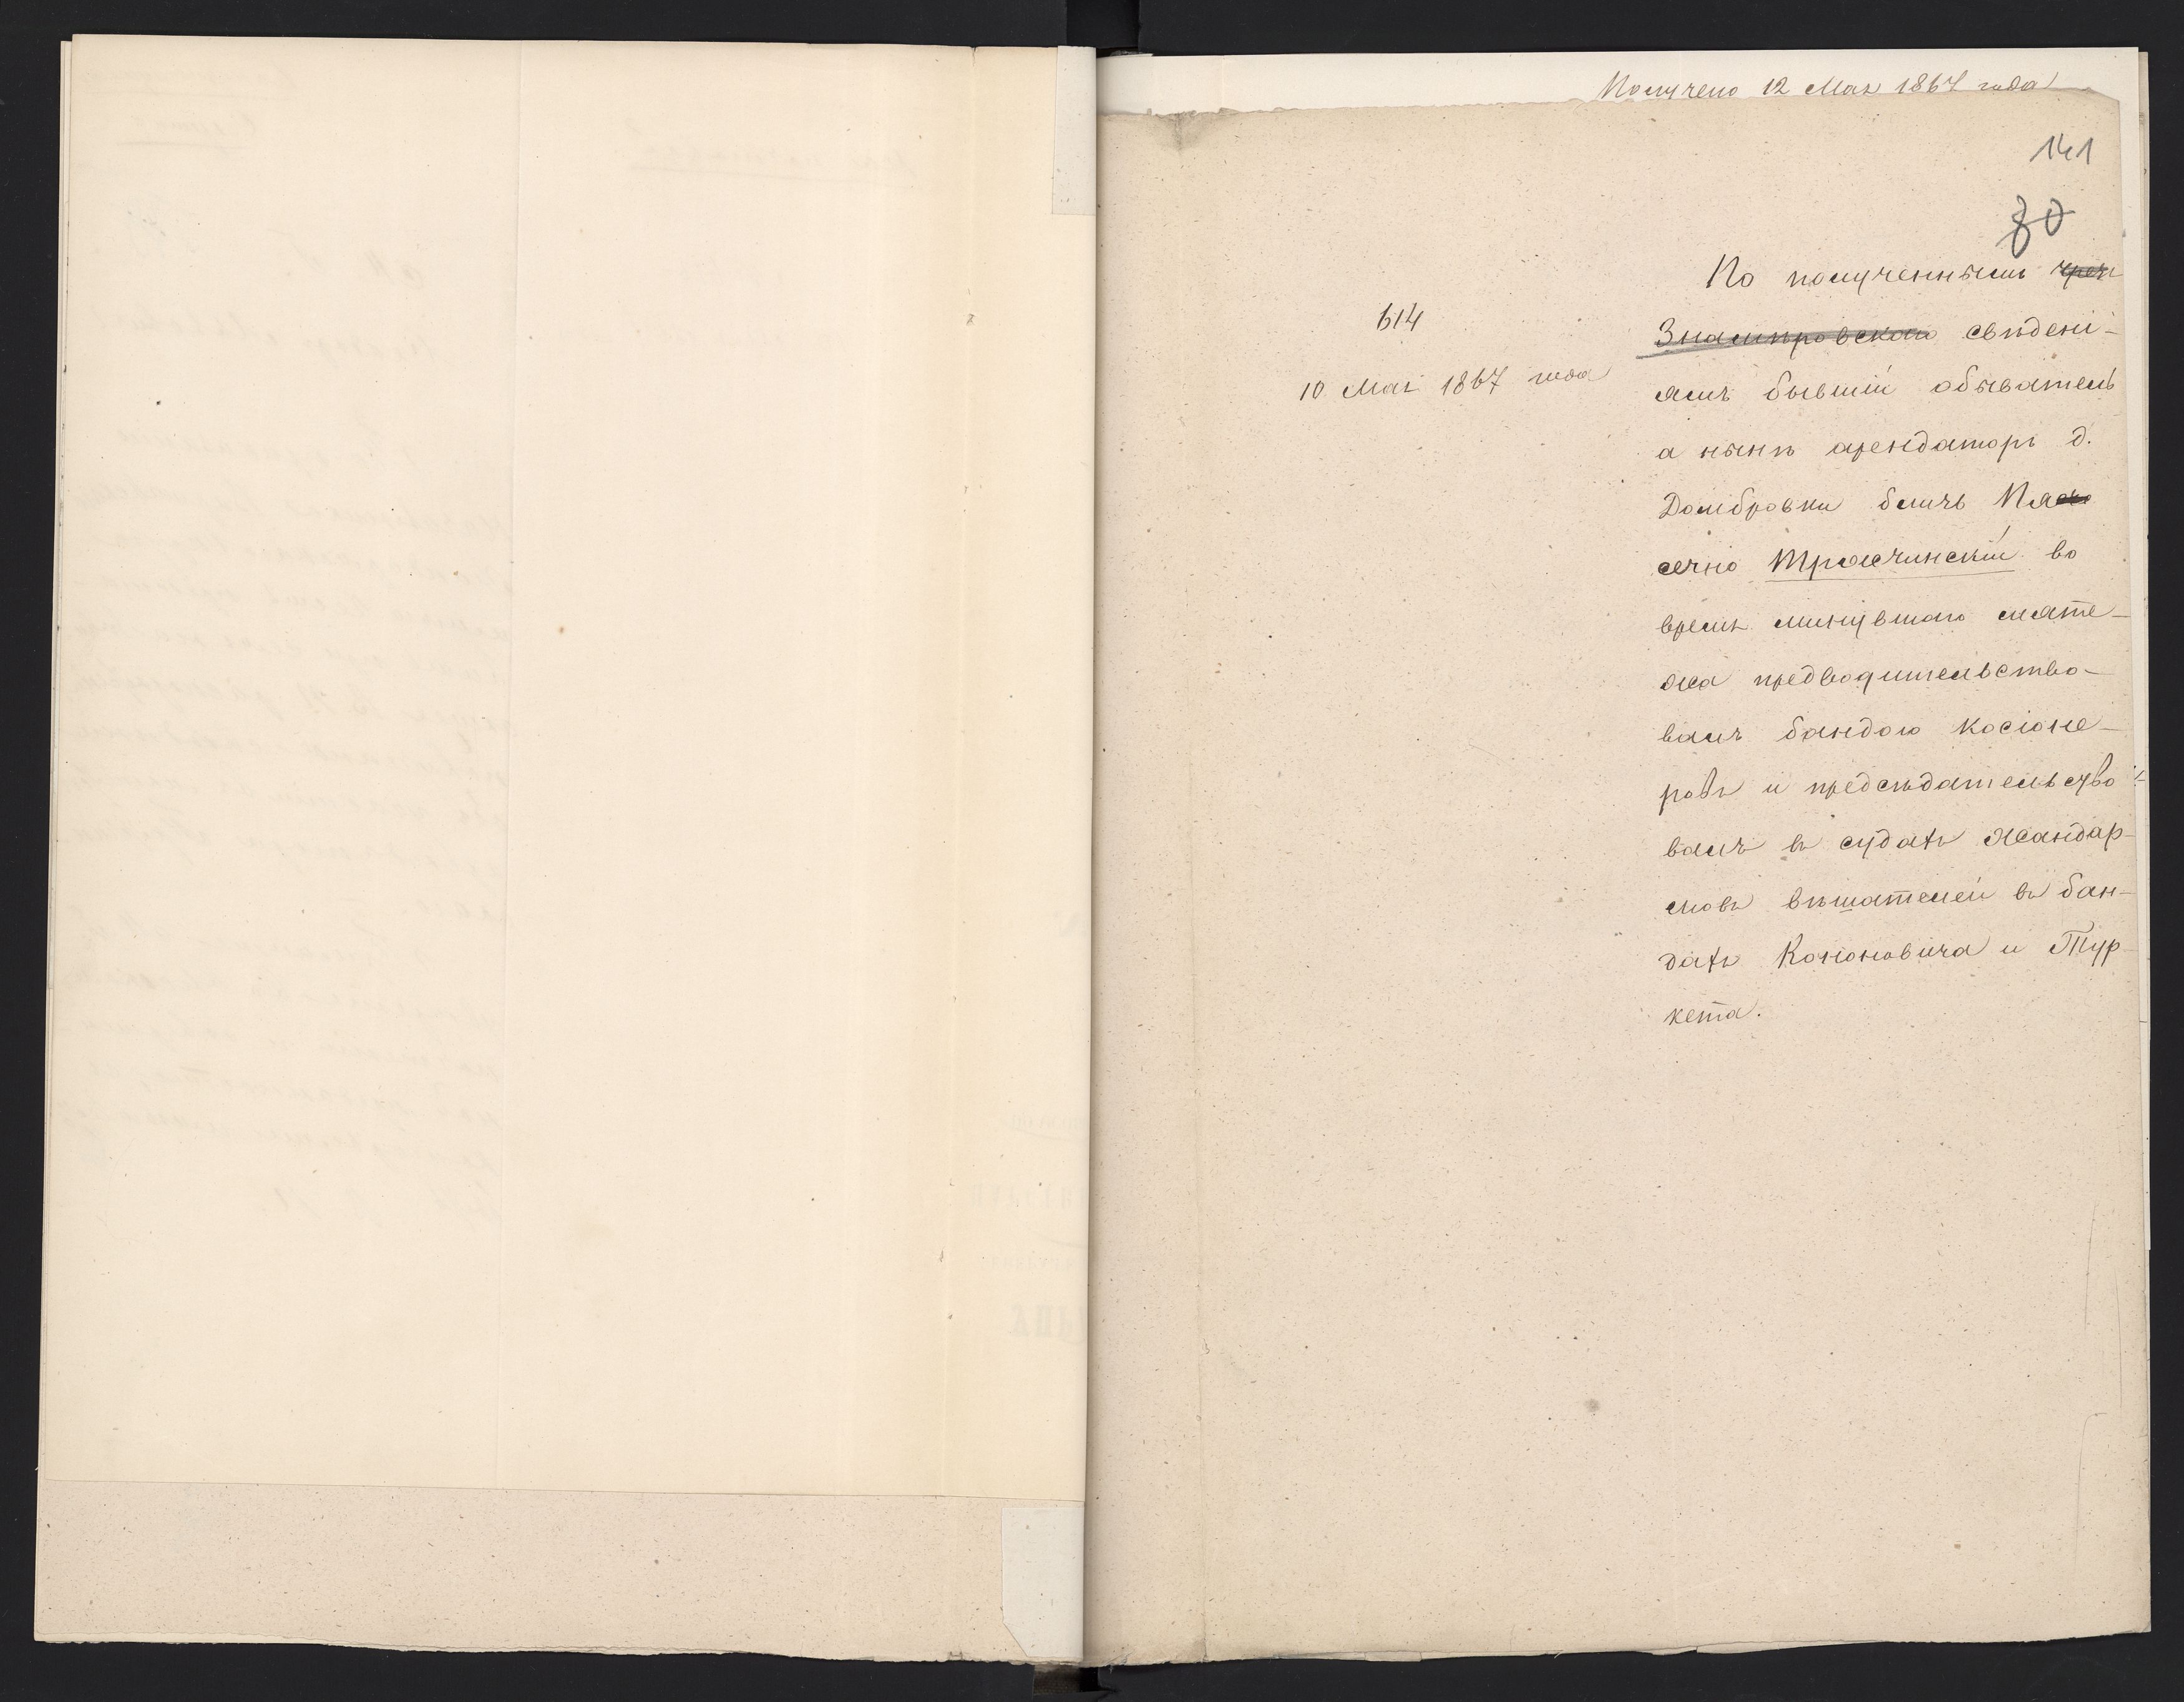 Получено 12 Мая 1867 года
141
80
614
10 Мая 1867 года
По полученнымъ чрезъ
Знамѣровскаго свѣдені-
ямъ бывшій обыватель
а нынѣ арендаторъ д.
Домбровки близъ Пяс
ечно Трамчинскій во
время минувшаго мяте-
жа предводительство-
валъ бандою косіоне-
ровъ и предсѣдательство-
валъ въ судахъ жандар-
мовъ вѣшателей въ бан-
дахъ Кононовича и Тур-
кета.